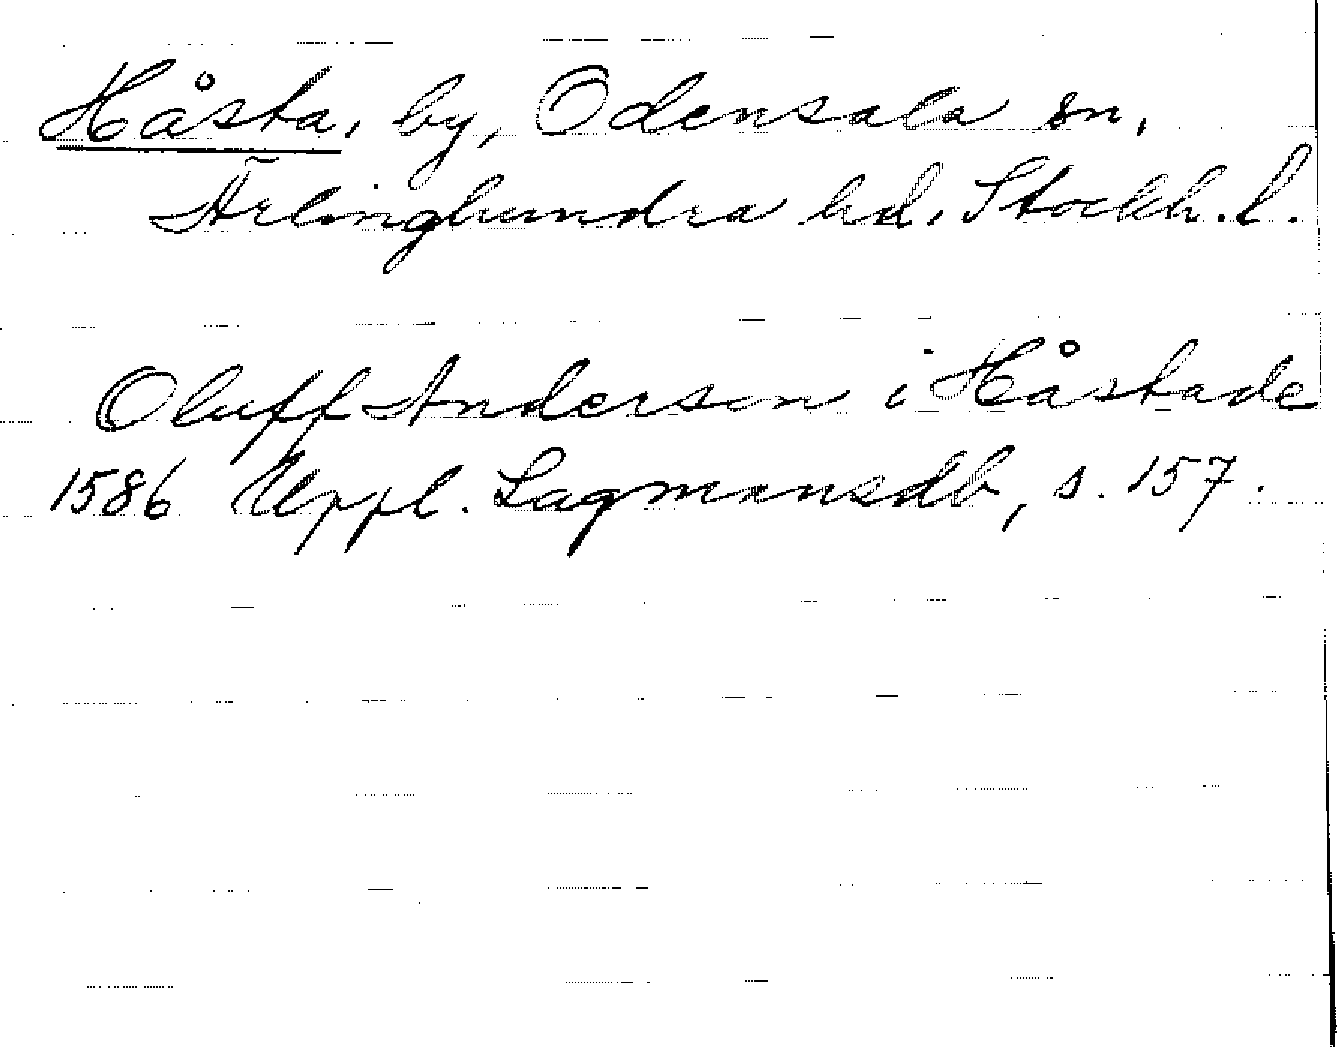 Håsta, by, Odensala sn,
Ärlinghundra hd, Stockh. l.
Oluff Anderson i Håstade
1586 Uppl. Lagmansdb, s. 157.